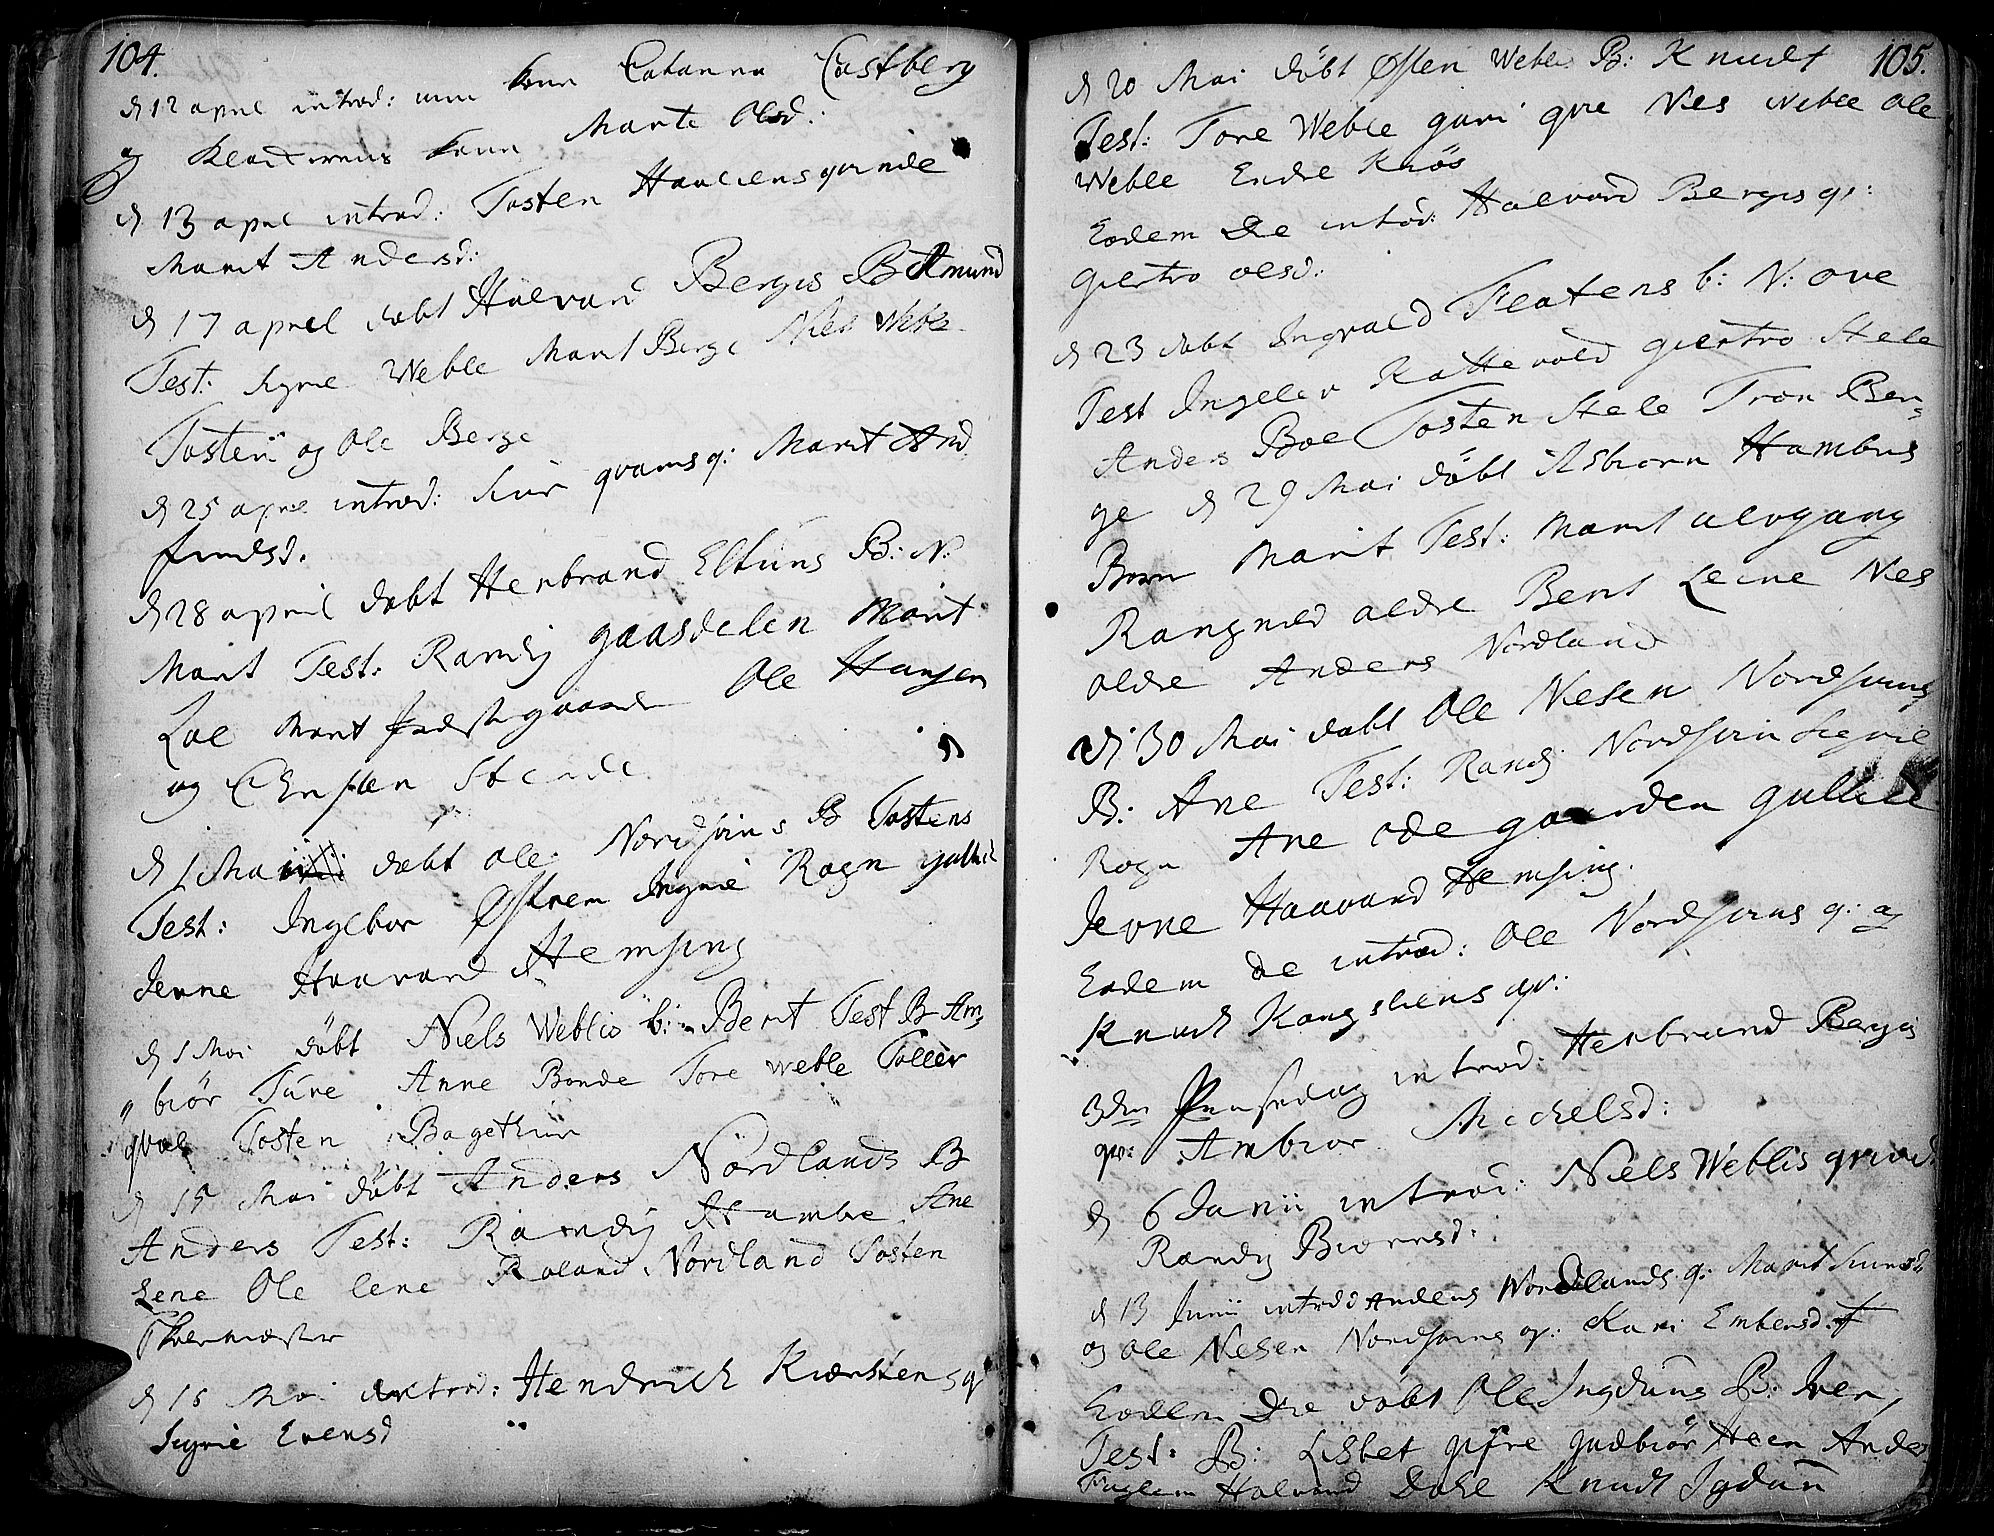 104.
d 12 april introd: min kone Catanna Castberg
og Klockerens kone Marite Olsd:
d 13 april introd: Tosten Haaliens qvinde
Marit Andersd:
d 17 april döbt Halvard Berges B Amund
Test: Sigrie Weble Marit Berge Niels Weble
Tosten og Ole Berge
d 25 april introd: Siur qvams q: Marit And
findsd.
d 28 april döbt Herbrand Eltuns B: N:
Marit Test: Randj gaasdelen Marit
Loe Marit Præstegaarden Ole Hansen
og Christen Stende
d 1 Maii döbt Ole Nordsvins B Tostens
Test: Ingebor Østrem Ingrie Rogn gulbech
Jevne Haavard Hemsing
d 1 Mai döbt Niels Weblis b: Berit Test B Am
biör Ture Anne Bonde Tore Weble Toller
qvale Tosten Bagethun
d 15 Mai döbt Anders Nordlands B
Anders Test: Randj Hambre Ane
Lene Ole lene Roland Nordland Tosten
d 15 Mai introd: Hendrich Kierstens q
Sigrie Evensd
105.
d 20 Mai döbt Østen Weble B: Knudt
Test: Tore Weble guri qve Nies Weble Ole
Weble Endre Krös
Eodem Die introd: Halvard Berges q:
giertro olsd:
d 23 döbt Ingvald Flatens b: N: ove
Test Ingeler Kattevold giertro Stele
Anders Boe Tosten Stele Tron Ber
ge d 29 Mai döbt Asbiorn Hambres
Born Marit Test: Marit ulvgang
Rangnild oldre Bent Leine Nies
oldre Anders Nordland
d 30 Mai döbt Ole Nielsen Nordsvins
B: Ane Test: Randj Nordsvin Sigrie
Rogn Ane ode gaarden gulbech
Jevne Haavard Hemsing.
Eodem die introd: Ole Nordsvins q: og
Knudt Kongsliens qv:
3den Pinsedag introd: Herbrand Berges
qv: Ambior Michelsd:
d 6 Junii introd: Niels Weblis qvind
Randj Biörnsd:
d 13 Junii introd Anders Nordlands q: Marit Siursd
og Ole Nielsen Nordsvins qv: Kari Embensd.
Eodem Die döbt Ole Ingduns B: Iver,
Test: B: Lisbet qifre gudbiör Heen Anders
Fuglem Halvord Dohl Knudt Igdun